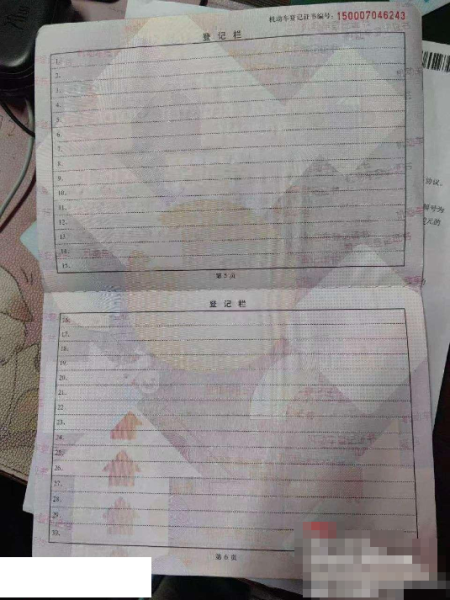 机动车登记证书编号：150007046243
登记栏
1.
2.
3.
4.
5.
6.
7.
8.
9.
10.
11.
12.
13.
14.
15.
第5页
登记栏
16.
17.
18.
19.
20.
21.
22.
23.
24.
25.
26.
27.
28.
29.
30.
第6页